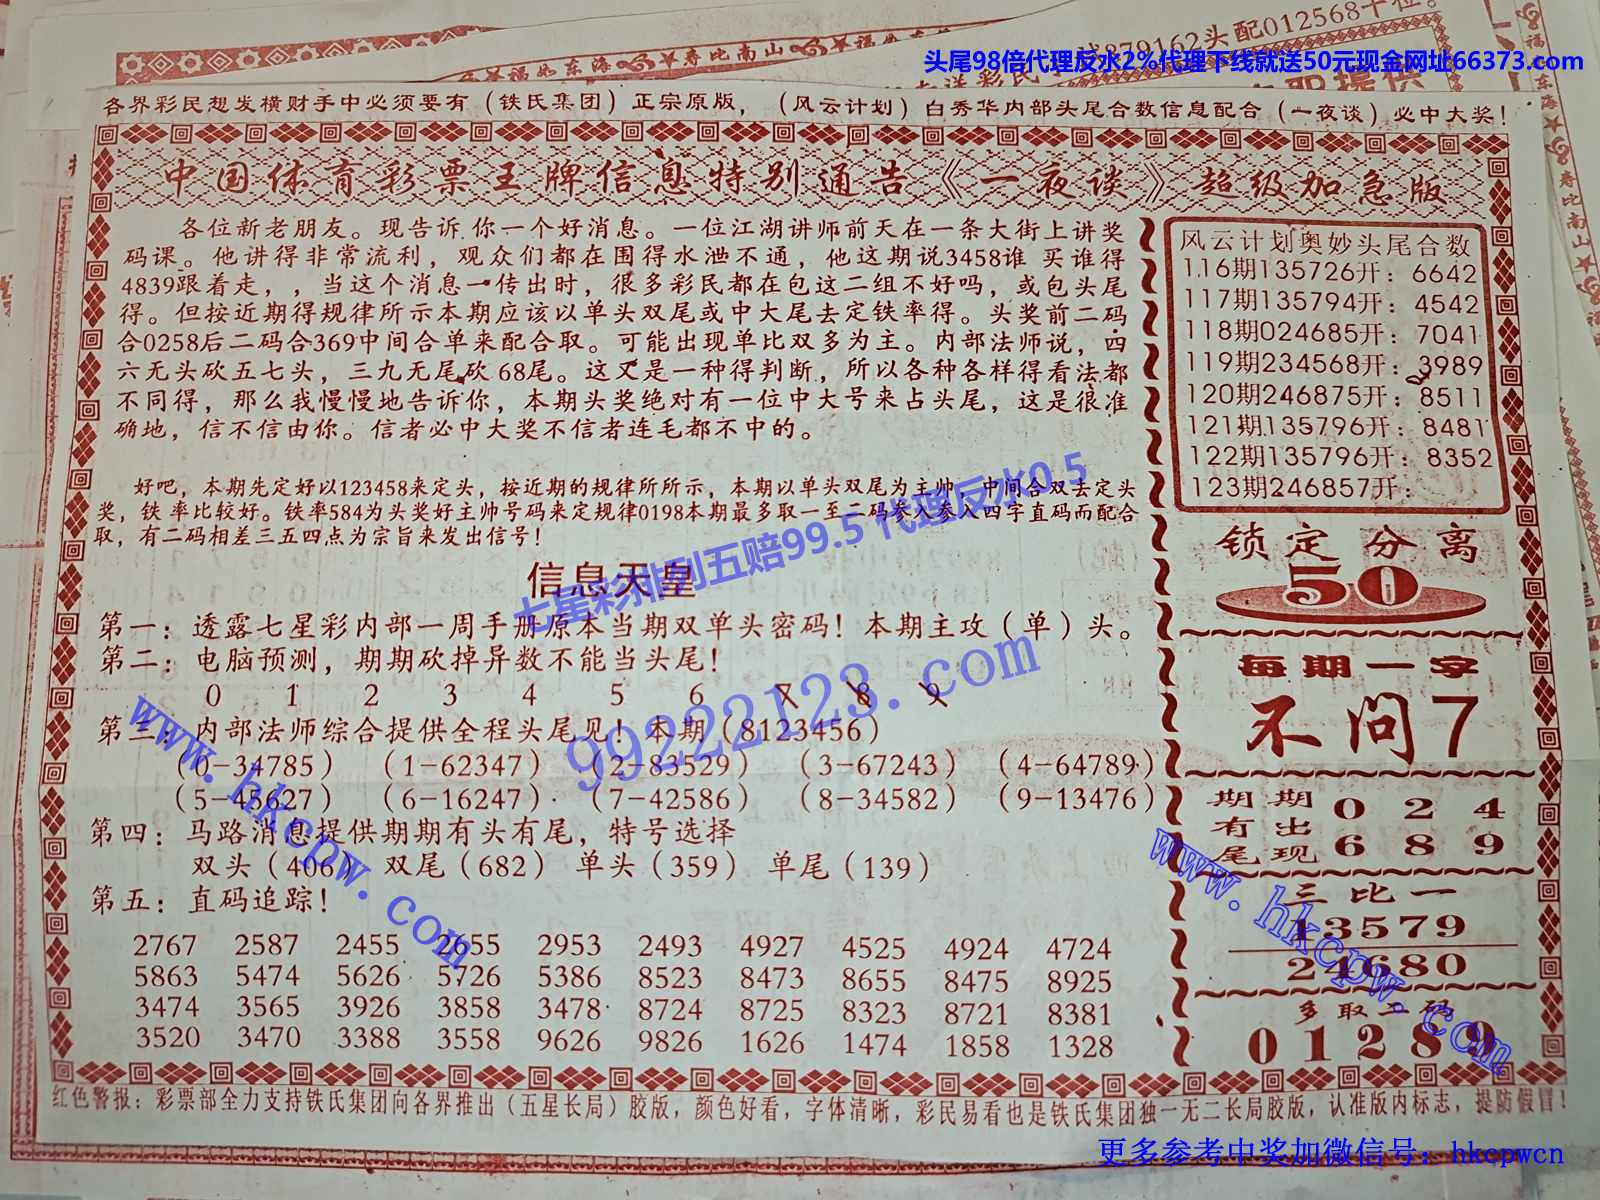 试879162头配012568十位。
头尾98倍代理反水2%代理下线就送50元现金网址66373.com
各界彩民想发横财手中必须要有（铁氏集团）正宗原版，（风云计划）白秀华内部头尾合数信息配合（一夜谈）必中大奖！
中国体育彩票王牌信息特别通告《一夜谈》超级加急版
各位新老朋友。现告诉你一个好消息。一位江湖讲师前天在一条大街上讲奖
码课。他讲得非常流利，观众们都在围得水泄不通，他这期说3458谁买谁得
4839跟着走，，当这个消息一传出时，很多彩民都在包这二组不好吗，或包头尾
得。但按近期得规律所示本期应该以单头双尾或中大尾去定铁率得。头奖前二码
合0258后二码合369中间合单来配合取。可能出现单比双多为主。内部法师说，四
六无头砍五七头，三九无尾砍68尾。这又是一种得判断，所以各种各样得看法都
不同得，那么我慢慢地告诉你，本期头奖绝对有一位中大号来占头尾，这是很准
确地，信不信由你。信者必中大奖不信者连毛都不中的。
好吧，本期先定好以123458来定头，按近期的规律所所示，本期以单头双尾为主帅，中间合双去定头
奖，铁率比较好。铁率584为头奖好主帅号码来定规律0198本期最多取一至二码参入参入四字直码而配合
取，有二码相差三五四点为宗旨来发出信号！
七星彩排列五赔99.5 代理反水0.5
信息天皇
第一：透露七星彩内部一周手册原本当期双单头密码！本期主攻（单）头。
第二：电脑预测，期期砍掉异数不能当头尾！
0 1 2 3 4 5 6 7 8 9
第三：内部法师综合提供全程头尾见！本期（8123456）
（0-34785）（1-62347）（2-83529）（3-67243）（4-64789）
（5-45627）（6-16247）（7-42586）（8-34582）（9-13476）
99222123.com
第四：马路消息提供期期有头有尾，特号选择
双头（406） 双尾（682） 单头（359） 单尾（139）
第五：直码追踪！
2767 2587 2455 2655 2953 2493 4927 4525 4924 4724
5863 5474 5626 5726 5386 8523 8473 8655 8475 8925
3474 3565 3926 3858 3478 8724 8725 8323 8721 8381
3520 3470 3388 3558 9626 9826 1626 1474 1858 1328
www.hkcpw.com
风云计划奥妙头尾合数
116期135726开：6642
117期135794开：4542
118期024685开：7041
119期234568开：3989
120期246875开：8511
121期135796开：8481
122期135796开：8352
123期246857开：
锁定分离
50
每期一字
不问7
期期有出尾现
0 2 4
6 8 9
三比一
13579
24680
多取二码
01289
www.hkcpw.com
红色警报：彩票部全力支持铁氏集团向各界推出（五星长局）胶版，颜色好看，字体清晰，彩民易看也是铁氏集团独一无二长局胶版，认准版内标志，提防假冒！
更多参考中奖加微信号：hkcpwcn